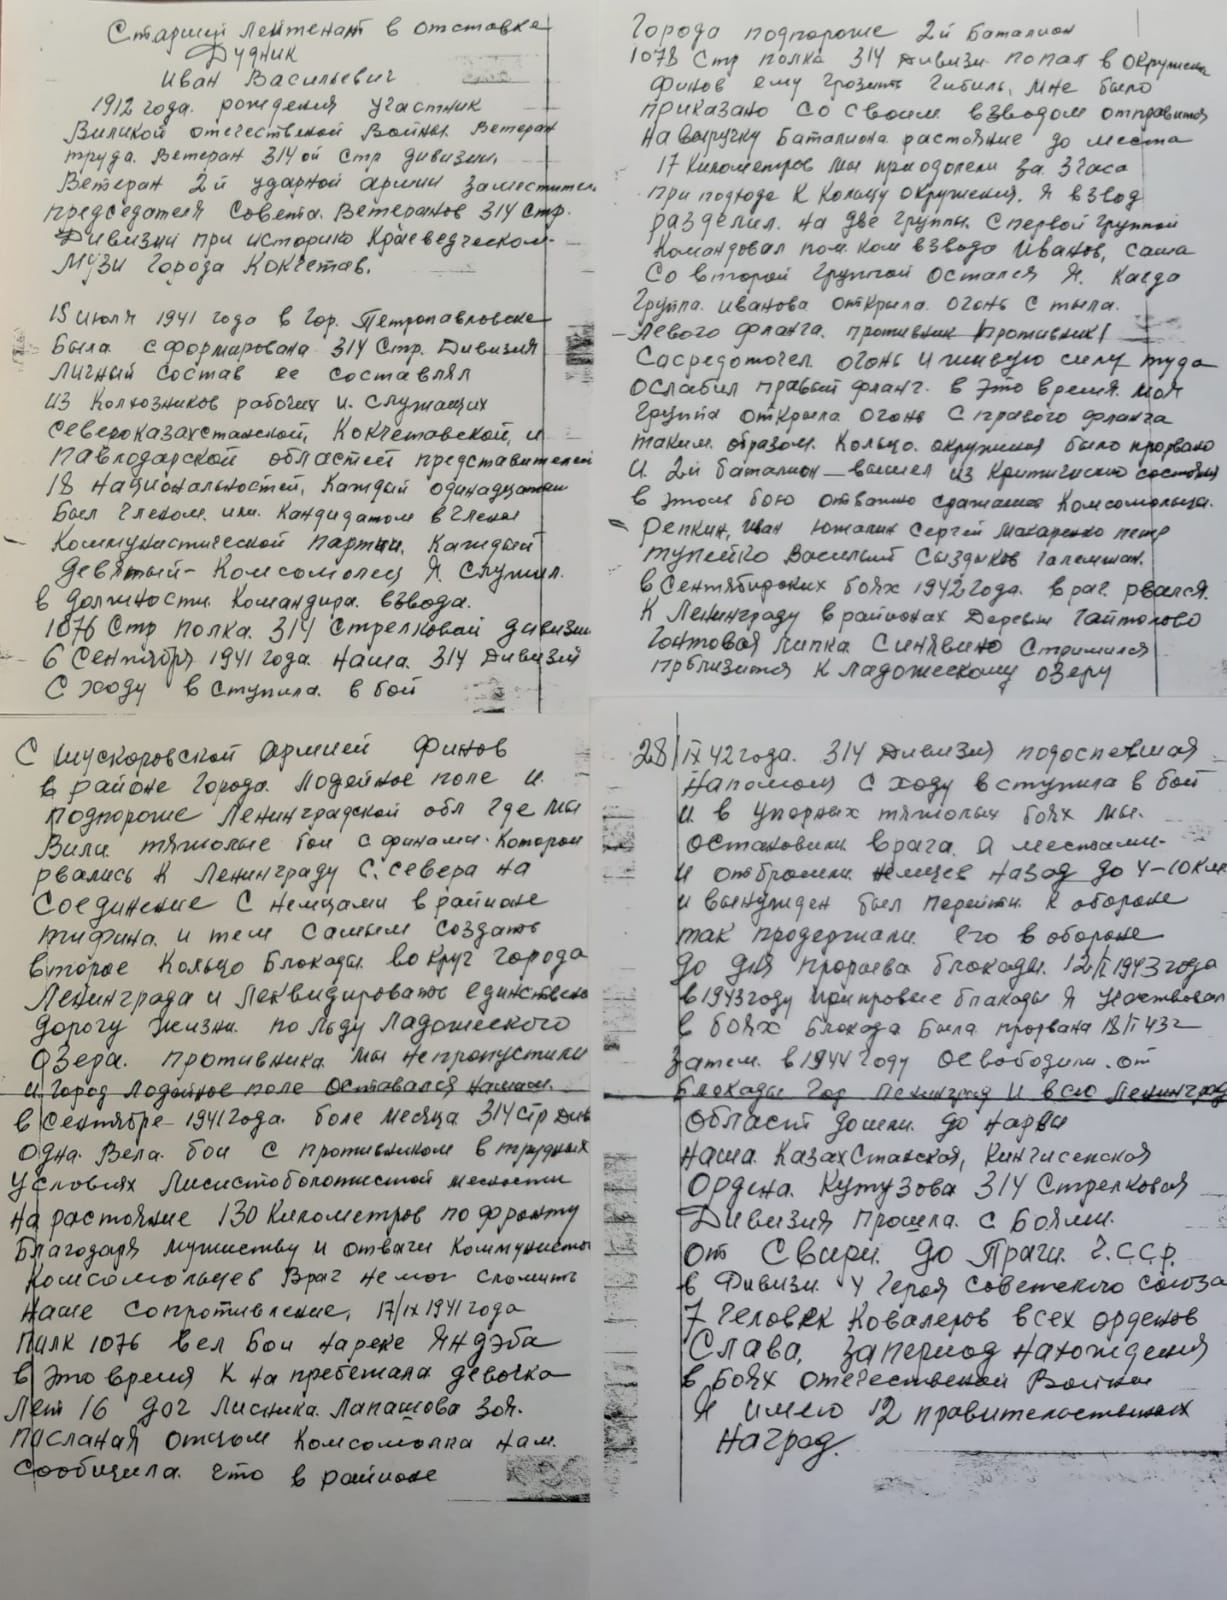 Старший лейтенант в отставке
Дудник
Иван Васильевич
1912 года. рождения участник
Виликой отечественой Войны. Ветеран
труда. Ветеран 314 ой стр дивизии.
Ветеран 2й ударной армии заместитель
председателя Совета. Ветеранов 314 стр.
Дивизии при историко Краеведческом.
Музи Города Кокчетав.
15 июля 1941 года в гор. Петропавловске
была сформирована 314 Стр. Дивизия
личный состав ее составлял
из Колхозников рабочих и. служащих
североказахстанской, Кокчетавской, и
Павлодарской областей представителей
18 национальностей, каждый одинадцатый
был членом. или. Кандидатом в члены
Коммунистической партии, Каждый
девятый - Комсомолец Я. служил.
в должности. Командира. взвода.
1076 Стр полка. 314 стрелковой дивизии
6 сентября 1941 года. наша. 314 Дивизия
с ходу вступила. в бой
С Шускоровской армией финов
в районе города. Лодейное поле и.
подпороже Ленинградской обл где мы
Вили. тяжолые бои с финами. которои
рвались к Ленинграду с. севера на
Соединение с немцами в районе
тифина. и тем самым создать
второе кольцо блокады. вокруг города
Ленинграда и леквидировать единствено
дорогу жизни. по льду ладожеского
озера. противника мы непропустили
и город Лодейное поле оставался нашим.
в сентябре 1941 года. боле месяца 314 стр див
одна. вела. бои с противником в трудных
условиях лисистоболотистой месности
на растояние 130 километров по фронту
благодаря мужиству и отваги коммунисты
комсомольцев враг немог сломить
наше сопротивление, 17/IX 1941 года
Пилк 1076 вел бои нареке Яндэба
в это время к на пребежала девочка
лет 16 доч лисника. Лапашова Зоя.
пасланая отцом комсомолка нам.
сообщила. что в районе
Города подпороже 2й баталион
1078 Стр полка 314 дивизи попал в окружени
финов ему грозить гибиль, мне было
приказано со своим взводом отправится
на выручку баталиона растояние до места
17 километров мы приодолели за 3 часа
при подходе к кольцу окружения. я взвод
разделил. на две группы. с первой группой
командовал пом. ком взвода Иванов, саша
со второй группой остался я. Кагда
группа. Иванова открыла. огонь с тыла.
левого фланга. противник противник
сасредоточел огонь и живую силу туда
ослабил правый фланг. в это время. моя
группа открыла огонь с правого фланга
таким. образом. кольцо. окружения было прорвано
и 2й баталион вышел из критического состояня
в этом бою отважно сражались комсомольцы.
Репкин, Иван Южалин Сергей Макаренко петр
тупейко Василий Сыздыков Галемжан.
в сентябирских боях 1942 года. враг. рвался.
к Ленинграду в районах деревни Гайтолово
Гонтовая липка Синявино стримился
приблизится к ладожескому озеру
28/IX 42 года. 314 Дивизия подоспевшая
напомощ с ходу вступила в бой
и в упорных тяжолых боях мы.
остановили врага. а местами.
и отбросили немцев назад до 4-10 км
и вынужден был перейти к обороне
так продержали его в обороне
до дня прорыва блокады. 12/I 1943 года
в 1943 году припровые блакады я участвовал
в боях блокада была прорвана 18/I 43 г
затем. в 1944 году освободили. от
блокады гор ленинград и всю ленинград
област дошли. до нарвы
наша. казахстанская, Кингисепская
Ордена. Кутузова 314 Стрелковая
Дивизия прошла. с боями.
от Свири. до Праги. Ч.С.С.Р.
в дивизи. 4 героя советского союза
7 человек ковалеров всех орденов
слава, за период нахождения
в боях отечественой войны
я имею 12 правительственых
наград.